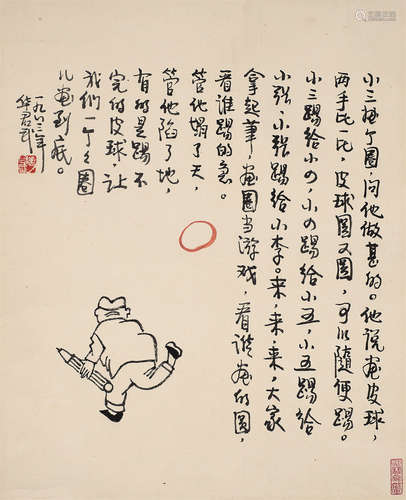 小三描个圈，问他做甚的。他说画皮球，
两手比一比，皮球圆又圆，可以随便踢。
小三踢给小四，小四踢给小五，小五踢给
小张，小张踢给小李。来，来，来，大家
拿起筆，画圈当游戏，看谁画的圆，
看谁踢的急。
管他塌了天，
管他陷了地，
有的是踢不
完的皮球，让
我们一个个圈
儿画到底。
一九八三年
华君武